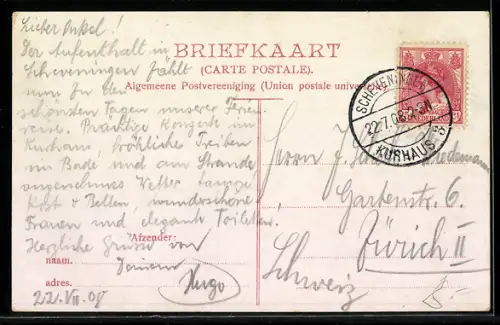 Lieber Onkel!
Der Aufenthalt in
Scheveningen zählt
nun zu den
schönsten Tagen unserer Ferien
reise. Prächtige Konzerte im
Kurhaus, fröhliches Treiben
im Bade und am Strande
angenehmes Wetter
Kost & Betten, wunderschöne
Frauen und elegante Toiletten.
Herzliche Grüsse von
Deinem
Hugo
22.VII.08
BRIEFKAART
(CARTE POSTALE).
Algemeene Postvereeniging (Union postale universelle)
Afzender:
naam.
adres.
SCHEVENINGEN
22.7.08 2-3N
KURHAUS
NEDERLAND
Herrn J.
Gartenstr. 6.
Zürich II
Schweiz